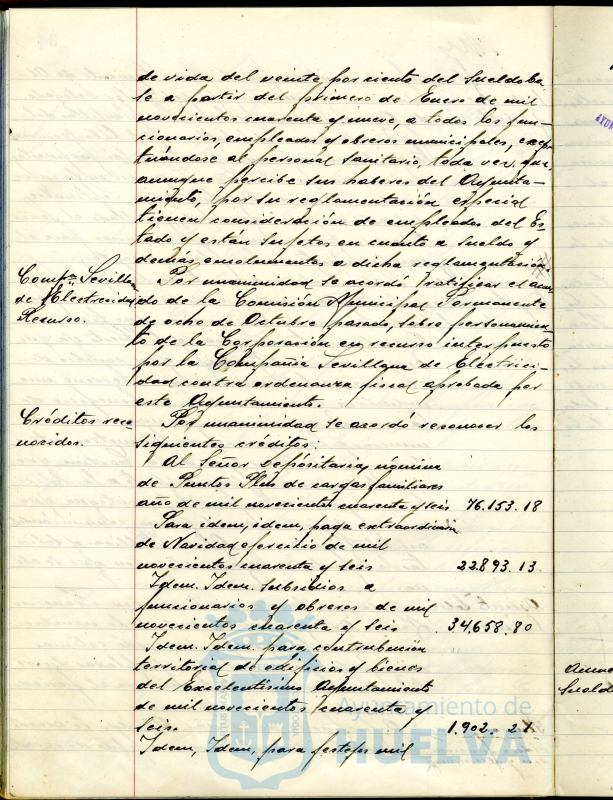 de vida del veinte por ciento del sueldo ba
se a partir del primero de Enero de mil
novecientos cuarenta y nueve, a todos los fun-
cionarios, empleados y obreros municipales, excep
tuándose al personal sanitario, toda vez que,
aunque percibe sus haberes del Ayunta-
miento, por su reglamentación especial
tienen consideración de empleados del Es-
tado y están sujetos en cuanto a sueldo y
demas emolumentos a dicha reglamentación.
Compª. Sevillana
de Electricidad
Recurso.
Por unanimidad se acordó ratificar el acuer
do de la Comisión Municipal Permanente
de ocho de Octubre pasado, sobre personamien
to de la Corporación en recurso interpuesto
por la Compañia Sevillana de Electrici-
dad contra ordenanza fiscal aprobada por
este Ayuntamiento.
Créditos reco-
nocidos.
Por unanimidad se acordó reconocer los
siguientes créditos:
Al Señor Depositario, nómina
de Puntos Plus de cargas familiares
año de mil novecientos cuarenta y seis 76.153.18
Para idem, idem, paga extraordinaria
de Navidad ejercicio de mil
novecientos cuarenta y seis 22.893.13.
Idem. Idem. subsidios a
funcionarios y obreros de mil
novecientos cuarenta y seis 34.658.80
Idem. Idem. para contribución
territorial de edificios y bienes
del Excelentísimo Ayuntamiento
de mil novecientos cuarenta y
seis. 1.902.27
Idem, Idem, para festejos mil
Ayuntamiento de
HUELVA